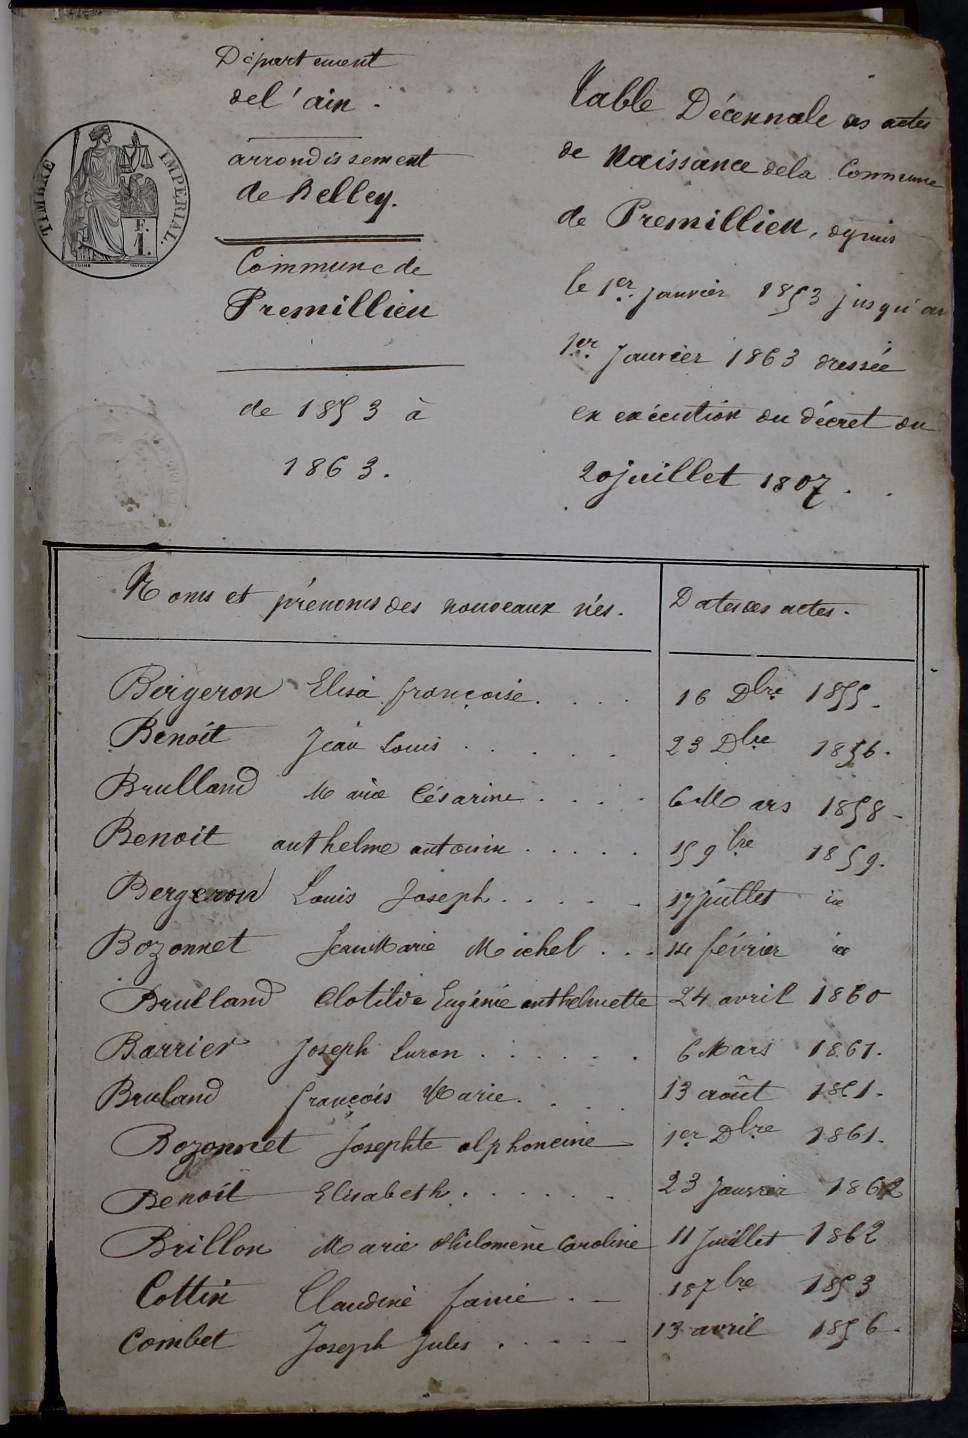 Département
del'ain.
arrondissement
de Belley.
Commune de
Premillieu
de 1853 à
1863.
TIMBRE IMPÉRIAL.
F.
1.
Table Décennale des actes
de Naissance dela Commune
de Premillieu, depuis
le 1er Janvier 1853 jusqu'au
1er Janvier 1863 dressée
en exécution du décret du
20 juillet 1807.
Noms et prénoms des nouveaux nés. Dates des actes.
Bergeron Elisa françoise.... 16 Dbre 1855.
Benoît Jean Louis..... 23 Dbre 1856.
Brulland Marie Césarine.... 6 Mars 1858
Benoit anthelme antonin..... 15 9bre 1859.
Bergeron Louis Joseph..... 17 juillet id
Bozonnet Jean Marie Michel... 14 février id
Brulland Clotilde Eugénie anthelmette 24 avril 1860
Barrier Joseph...... 6 Mars 1861.
Bruland françois Marie.... 13 août 1861.
Bozonnet Josephte alphoncine 1er Dbre 1861.
Benoît Elisabeth...... 23 Janvier 1862
Brillon Marie Philomène Caroline 11 Juillet 1862
Cottin Claudine fanie. 18 7bre 1853
Combet Joseph Jules..... 13 avril 1856.